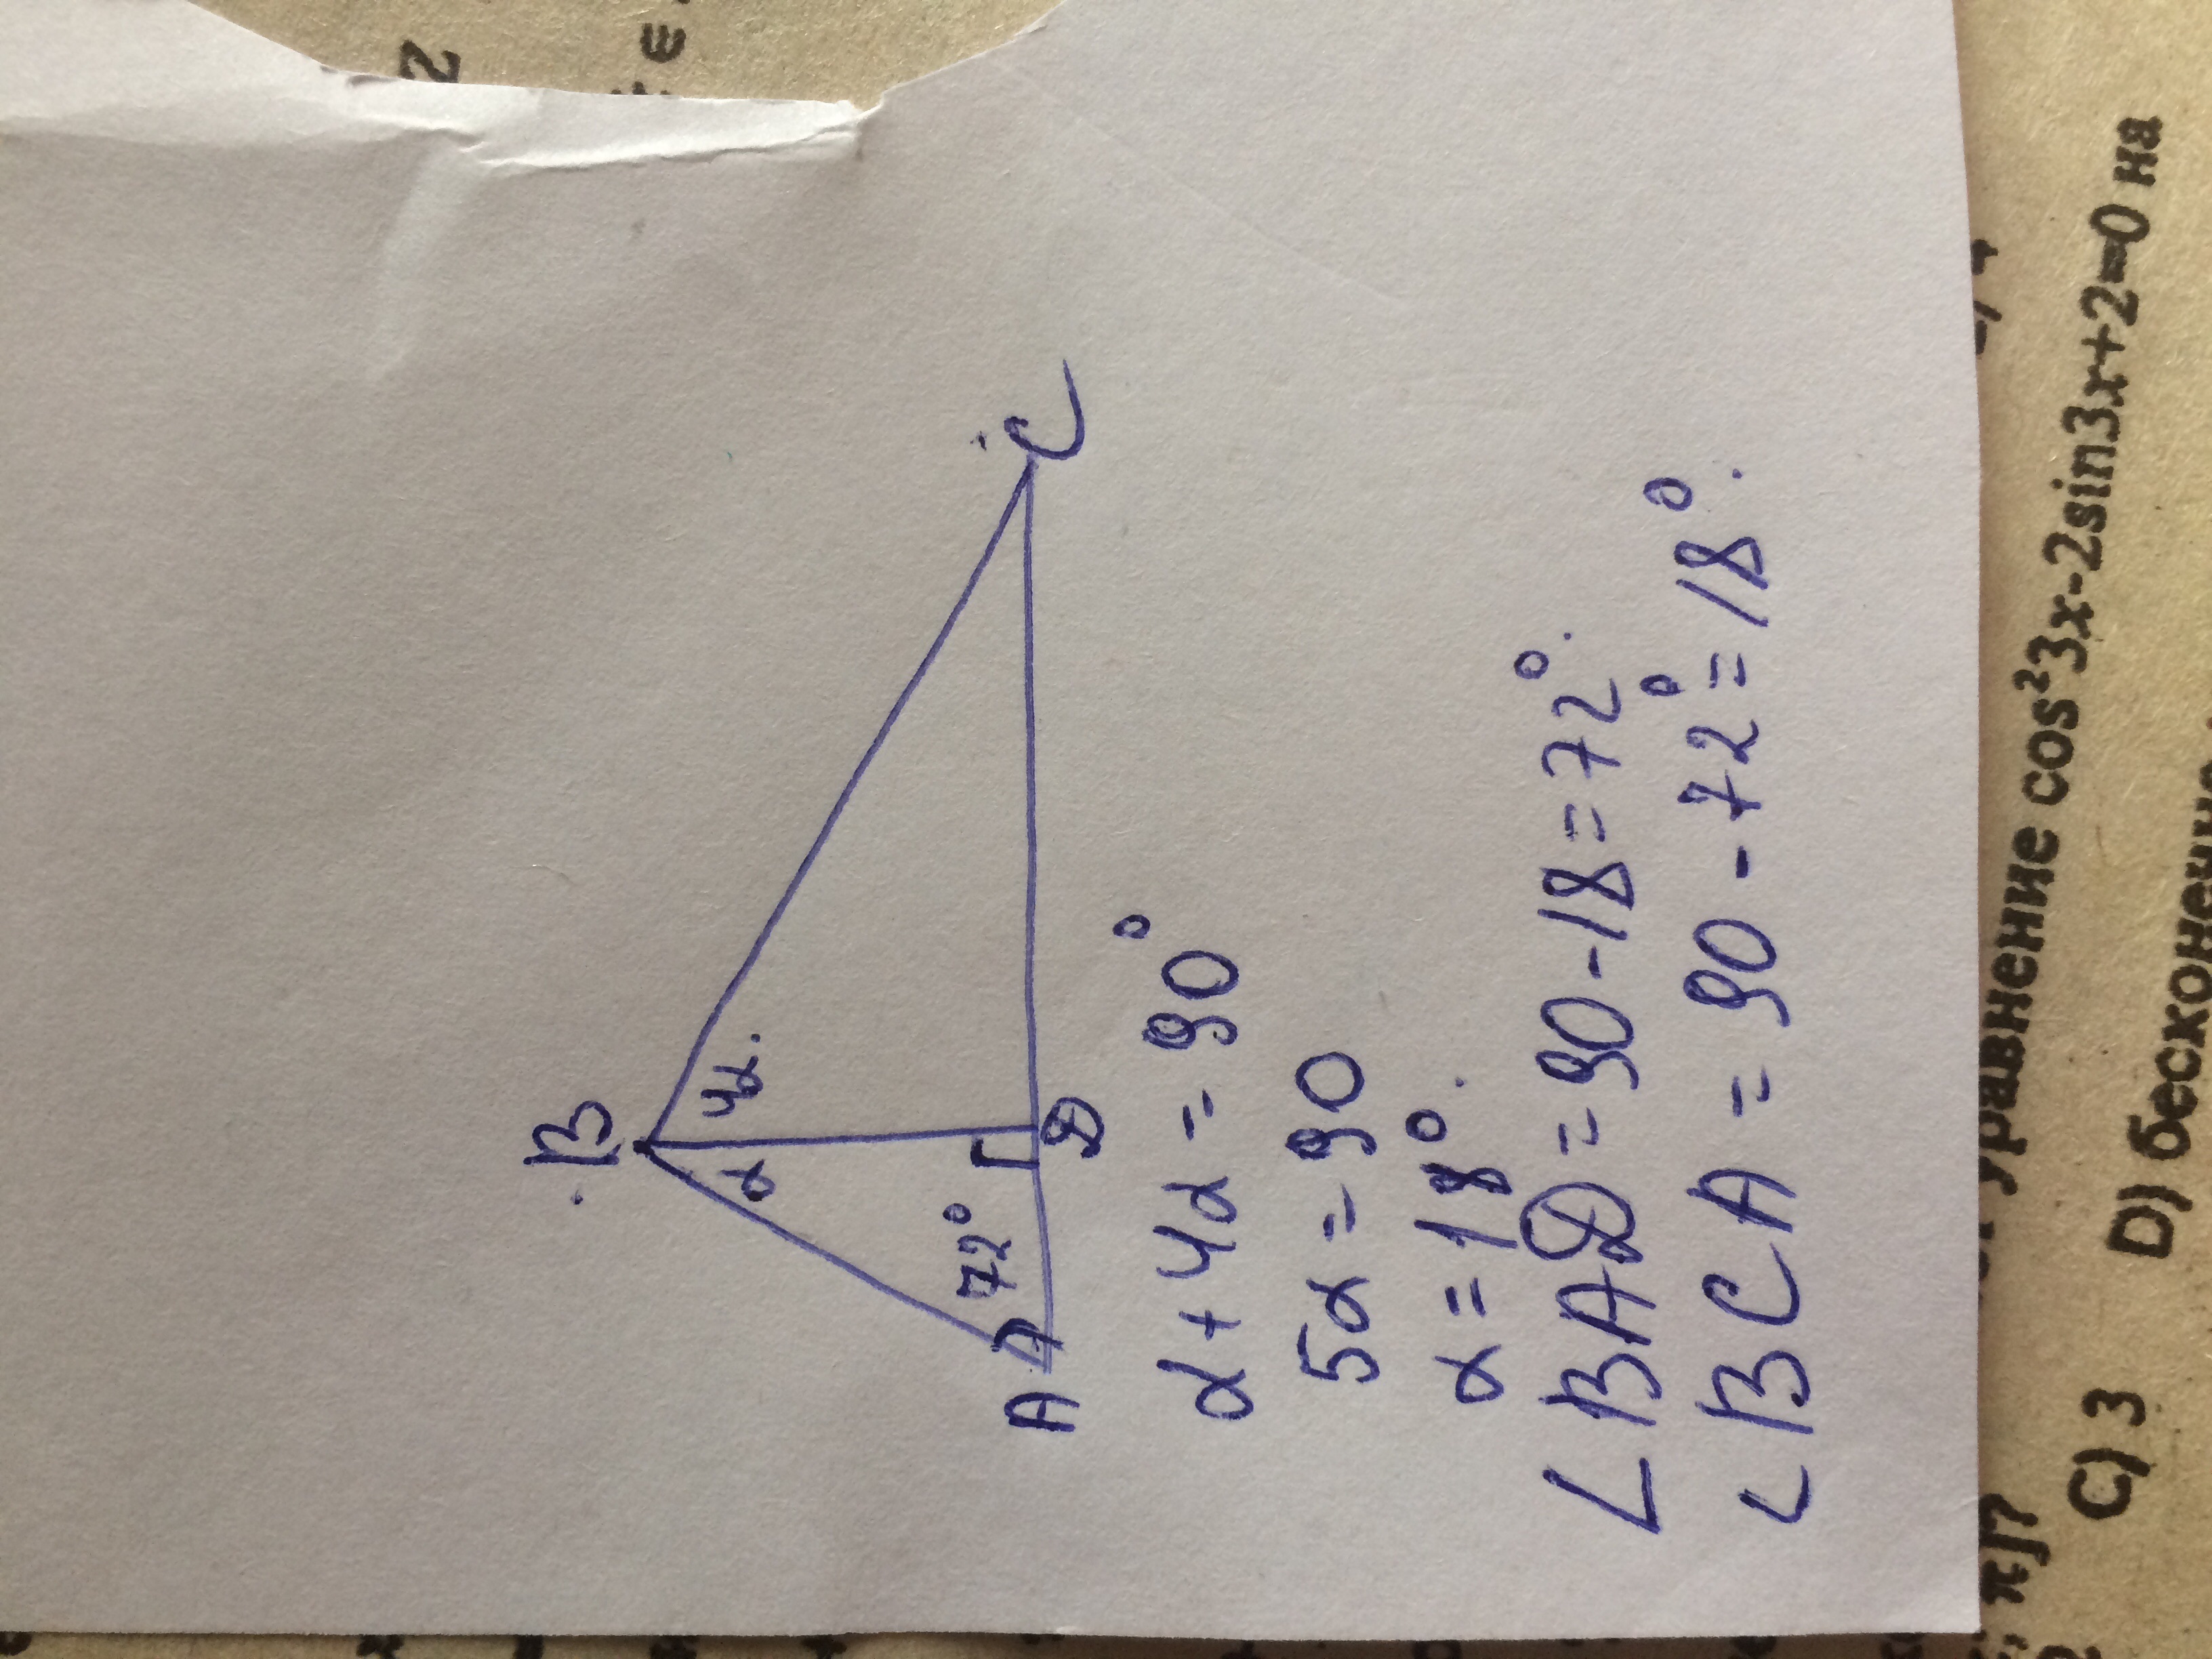 B
α 4α.
72°
A D C
α+4α=90°
5α=90
α=18°.
∠BAD=90-18=72°.
∠BCA=90-72°=18°.
уравнение cos²3x-2sin3x+2=0 на
π]?
C) 3 D) бесконечно
2